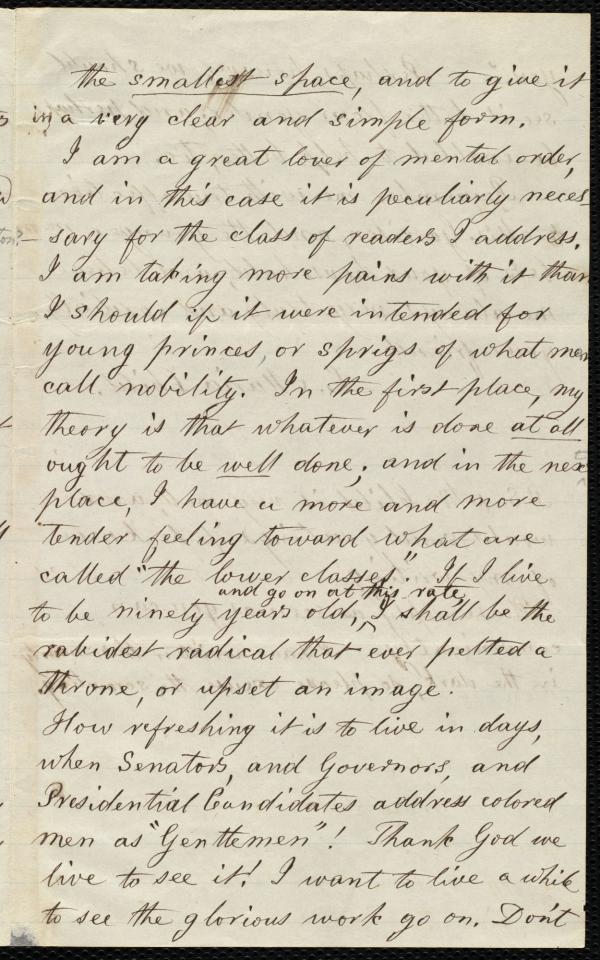 the smallest space, and to give it
in a very clear and simple form.
I am a great lover of mental order,
and in this case it is peculiarly neces-
sary for the class of readers I address.
I am taking more pains with it than
I should if it were intended for
young princes, or sprigs of what men
call nobility. In the first place, my
theory is that whatever is done at all
ought to be well done; and in the next
place, I have a more and more
tender feeling toward what are
called "the lower classes". If I live
and go on at this rate,
to be ninety years old, I shall be the
rabidest radical that ever pelted a
throne, or upset an image.
How refreshing it is to live in days,
when Senators, and Governors, and
Presidential Candidates address colored
men as "Gentlemen"! Thank God we
live to see it! I want to live a while
to see the glorious work go on. Don't